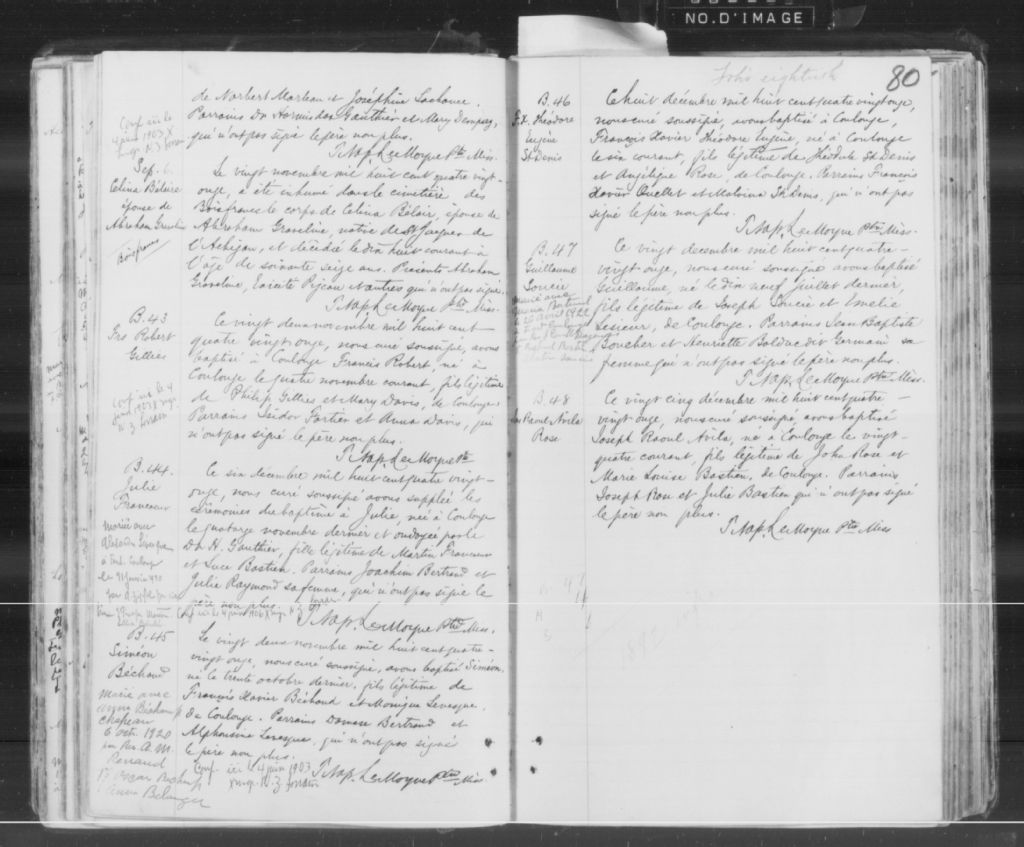 NO. D'IMAGE
80
de Norbert Marleau et Joséphine Lachance.
Parrains Dr Hormisdas Gauthier et Mary Dempsey,
qui n'ont pas signé le père non plus.
T. Nap. LeMoyne Ptre Miss.
Conf ici le
4 juin 1903
Sep.
Celina Bélair
épouse de
Abraham Graveline
Boisfranc
Le vingt novembre mil huit cent quatre vingt-
onze, a été inhumé dans le cimetière des
Boisfranc le corps de Celina Bélair, épouse de
Abraham Graveline, native de St Jacques de
l'Achigan, et décédée le dix huit courant à
l'âge de soixante seize ans. Présents Abraham
Graveline, Pigeon et autres qui n'ont pas signé.
T. Nap. LeMoyne Ptre Miss.
B. 43
Frs Robert
Gillies
Conf ici le 4
juin 1903
Le vingt deux novembre mil huit cent-
quatre vingt onze, nous curé soussigné, avons
baptisé à Coulonge Francis Robert, né à
Coulonge le quatre novembre courant, fils légitime
de Philip Gillies et Mary Davis, de Coulonge.
Parrains Isidor Fortier et Anna Davis, qui
n'ont pas signé le père non plus.
T. Nap. LeMoyne Ptre
B. 44.
Julie
Francoeur
Mariée avec
à Fort Coulonge
Le six décembre mil huit cent quatre vingt-
onze, nous curé soussigné avons suppléé les
cérémonies du baptême à Julie, née à Coulonge
le quatorze novembre dernier et ondoyée par le
Dr H. Gauthier, fille légitime de Martin Francoeur
et Luce Bastien. Parrains Joachim Bertrand et
Julie Raymond sa femme, qui n'ont pas signé le
père non plus.
Conf ici le 4 juin 1906
T. Nap. LeMoyne Ptre Miss.
B. 45
Siméon
Béchand
Marié avec
Chapeau
6 oct. 1920
par Rev. A. M.
Renaud
Le vingt deux novembre mil huit cent quatre-
vingt onze, nous curé soussigné, avons baptisé Siméon,
né le trente octobre dernier, fils légitime de
François Xavier Béchand et Monique Levesque,
de Coulonge. Parrains Damase Bertrand et
Alphonsine Levesque, qui n'ont pas signé
le père non plus.
Conf. ici le 4 juin 1903
T. Nap. LeMoyne Ptre Miss
B. 46
F. X. Théodore
Eugène
St Denis
Le huit décembre mil huit cent quatre vingt onze,
nous curé soussigné, avons baptisé à Coulonge,
François Xavier Théodore Eugène, né à Coulonge
le six courant, fils légitime de Théodule St Denis
et Angélique Rose, de Coulonge. Parrains François
Xavier Ouellet et Malvina St Denis, qui n'ont pas
signé le père non plus.
T. Nap. LeMoyne Ptre Miss.
B. 47
Guillaume
Soucie
Marié avec
Le vingt décembre mil huit cent quatre-
vingt onze, nous curé soussigné avons baptisé
Guillaume, né le dix neuf juillet dernier,
fils légitime de Joseph Soucie et Emelie
Lesieur, de Coulonge. Parrains Jean Baptiste
Boucher et Henriette Bolduc dit Germain sa
femme qui n'ont pas signé le père non plus.
T. Nap. LeMoyne Ptre Miss.
B. 48
Jos Raoul Avila
Rose
Le vingt cinq décembre mil huit cent quatre-
vingt-onze, nous curé soussigné, avons baptisé
Joseph Raoul Avila, né à Coulonge le vingt-
quatre courant, fils légitime de John Rose et
Marie Louise Bastien, de Coulonge. Parrains
Joseph Rose et Julie Bastien qui n'ont pas signé
le père non plus.
T. Nap. LeMoyne Ptre Miss